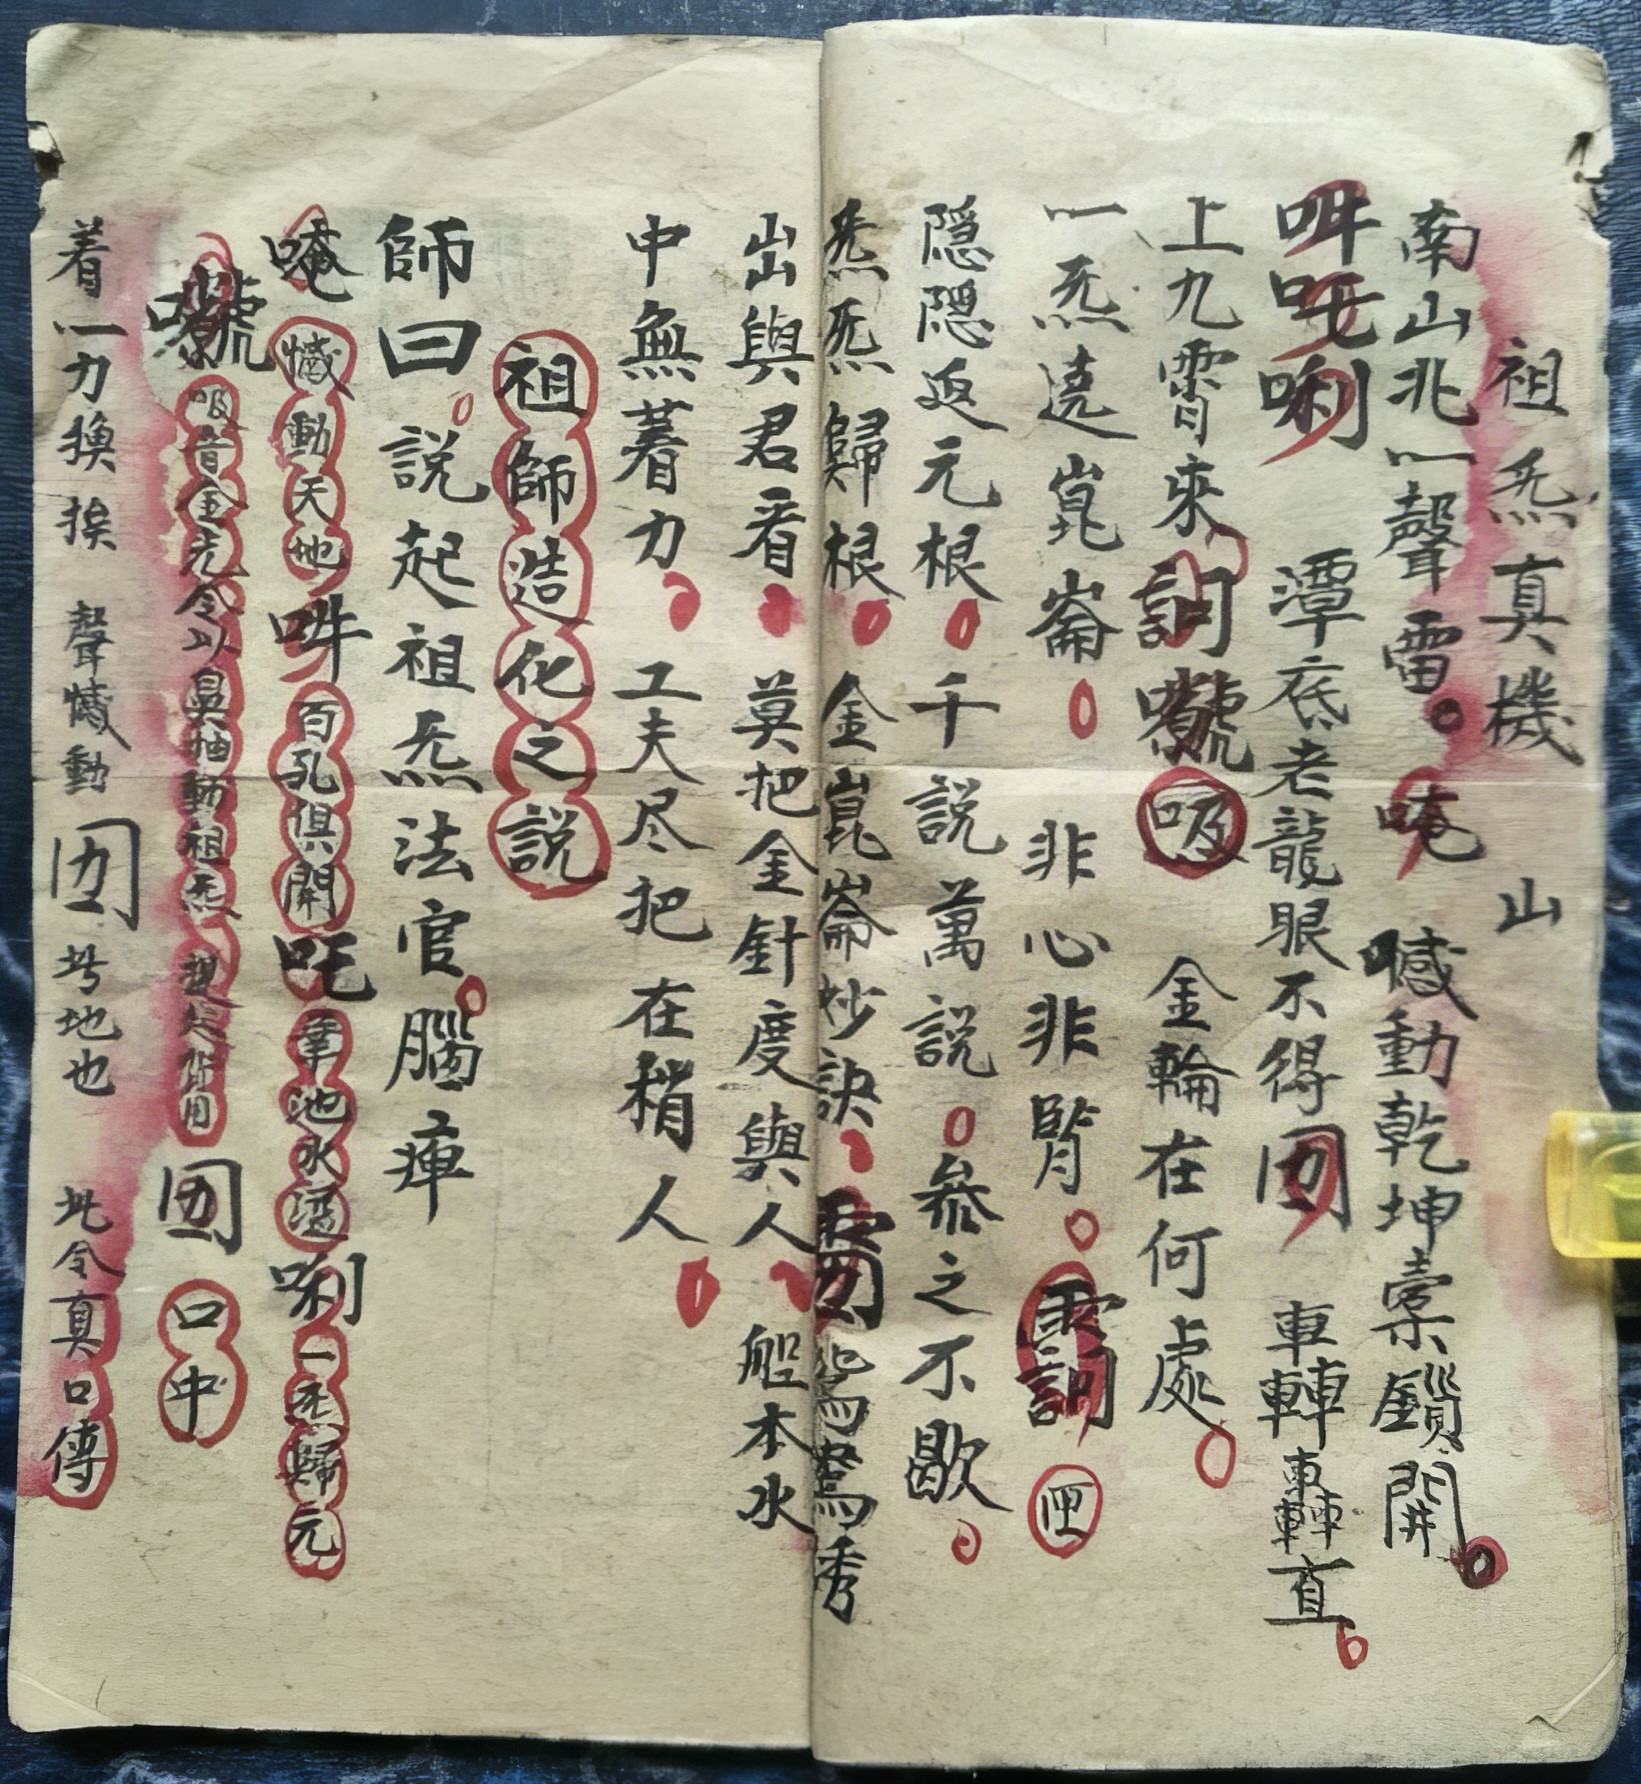 祖炁真機　山
南山北一聲雷　唵　喊動乾坤橐鑰開
吽吒唎　潭底老龍眼不得囬　車轉轟直
上九霄來　吸　金輪在何處
一炁遶崑崙　非心非腎
隱隱返元根　千說萬說　叅之不歇
炁炁歸根　金崑崙妙訣　鴛鴦秀
出與君看　莫把金針度與人　船本水
中無著力　工夫尽把在稍人
祖師造化之說
師曰　說起祖炁法官腦
唵　憾動天地　吽　百孔俱開　吒　華池水　唎　一炁歸元
金光令以鼻抽動祖炁　囬　口中
着一力換挨　聲憾動　地也　此令真口傳